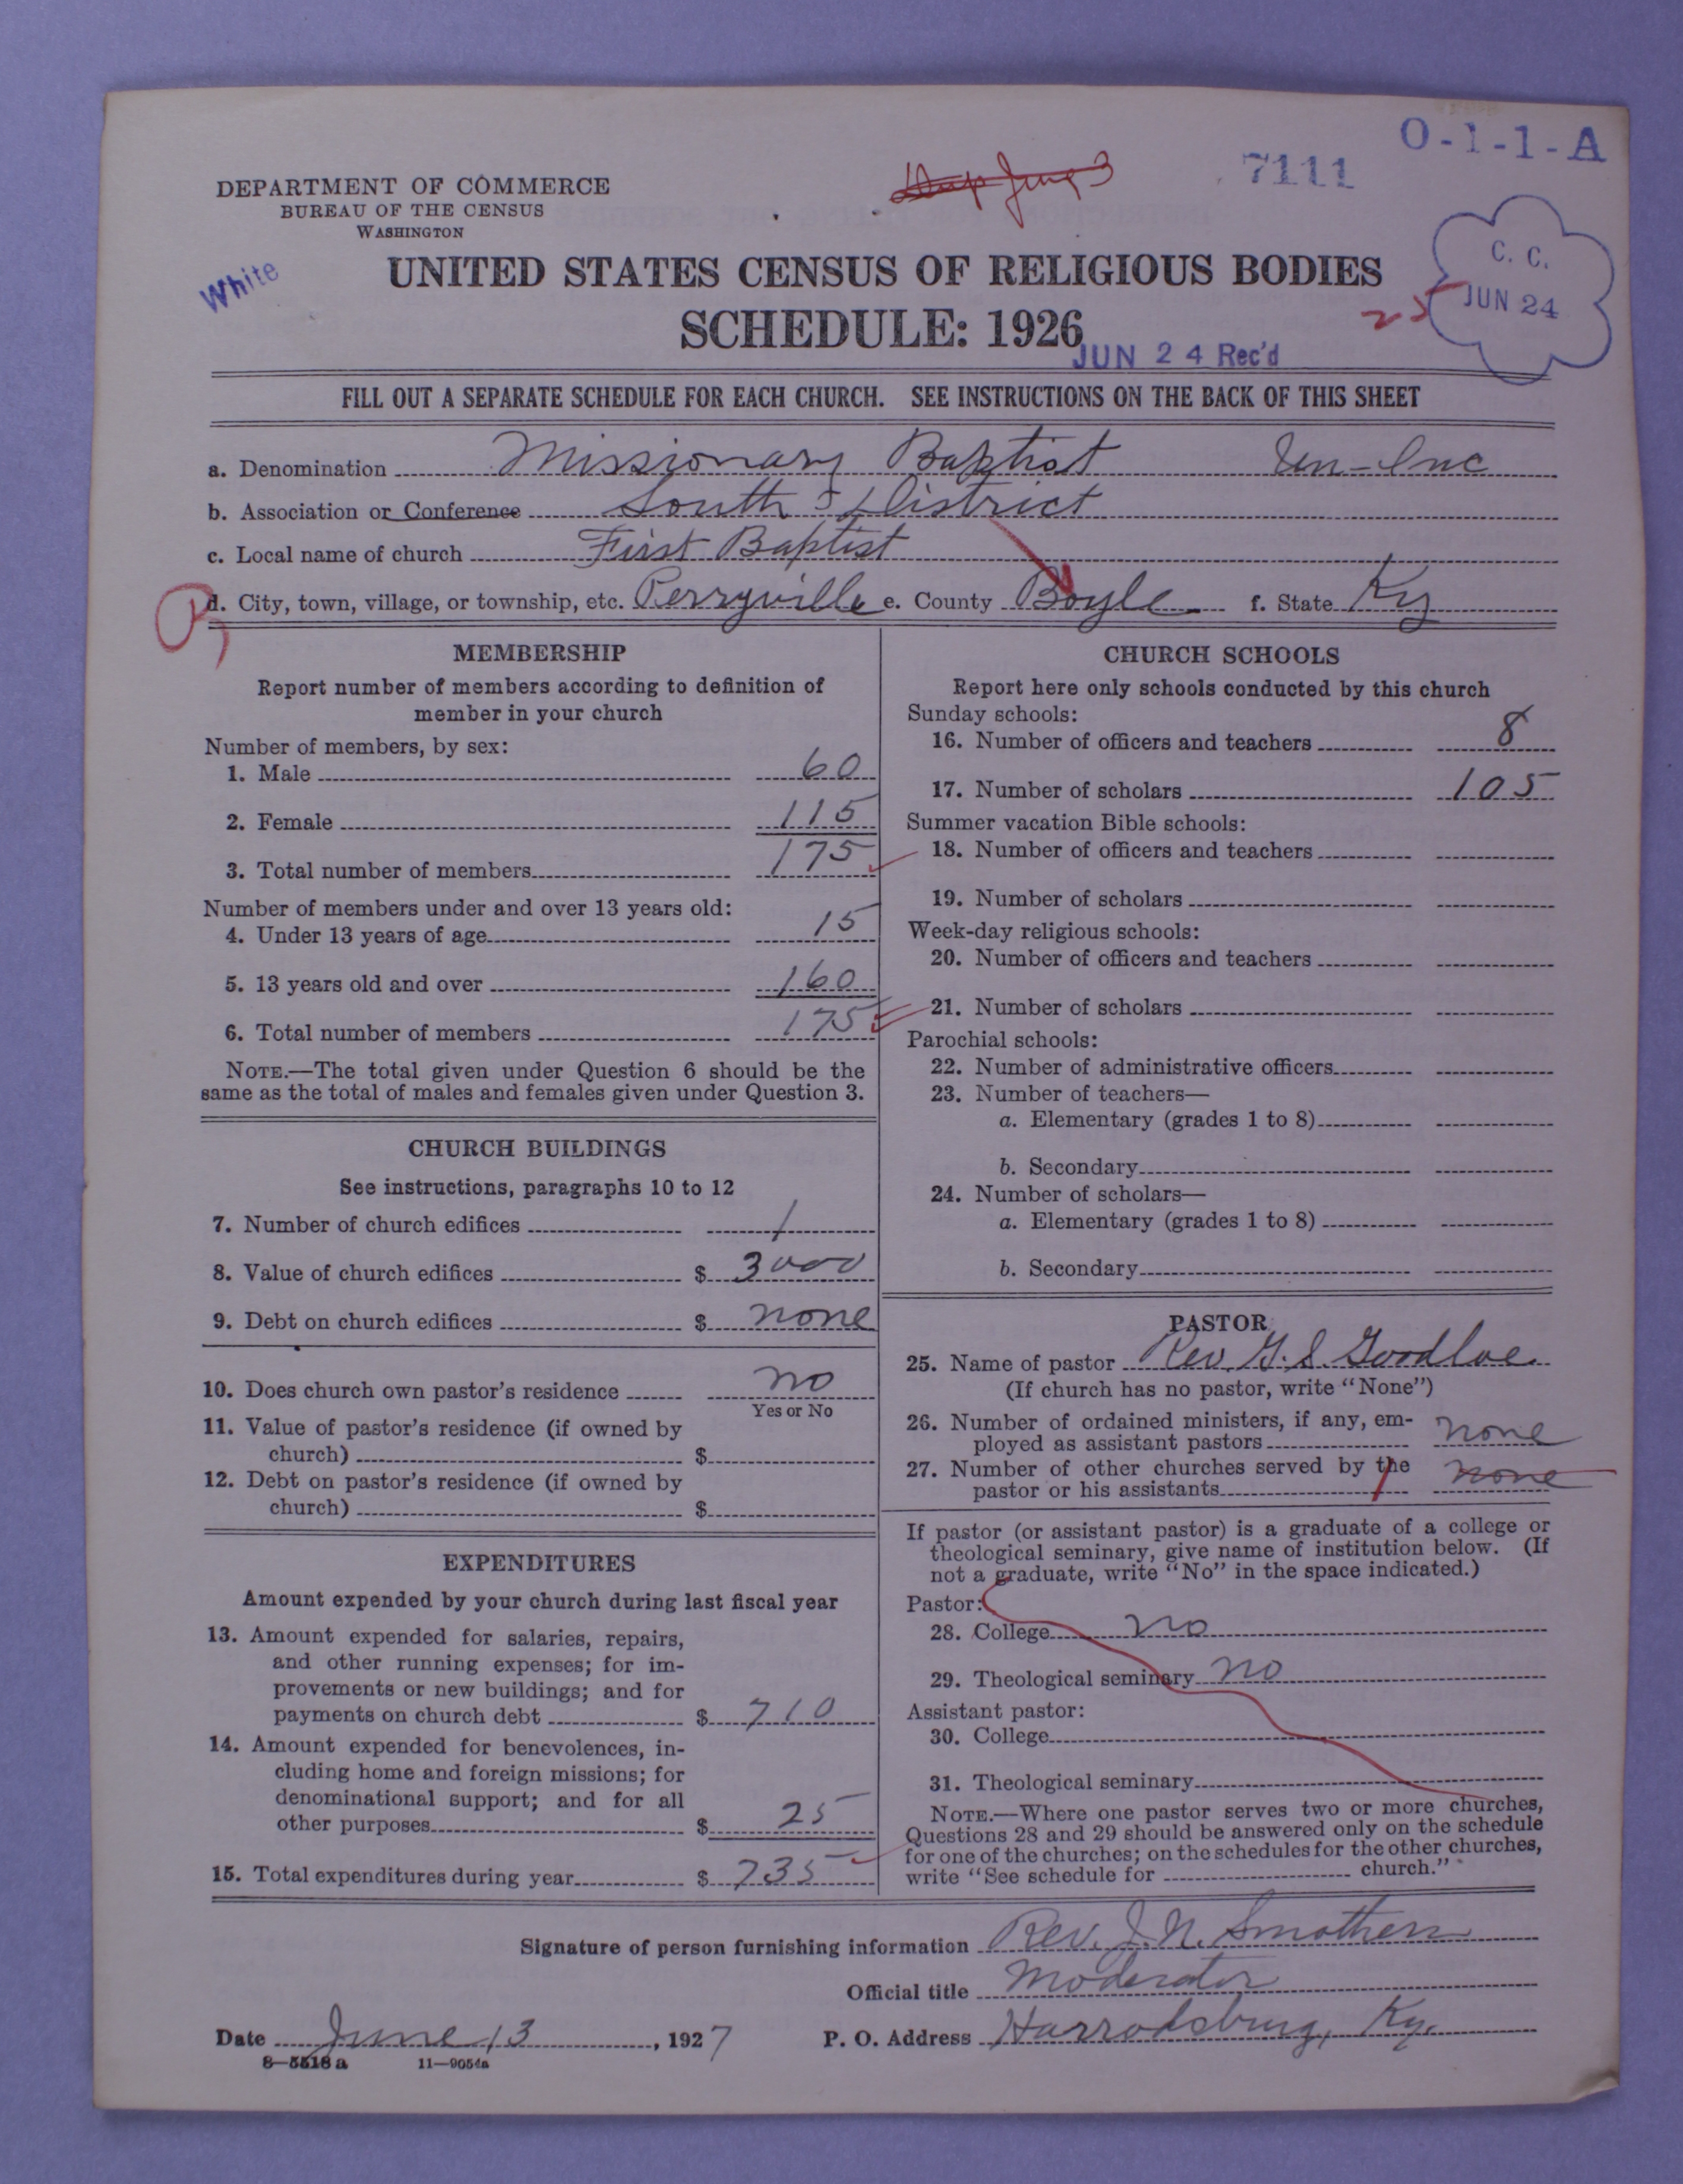 O-1-1-A
7111
DEPARTMENT OF COMMERCE
BUREAU OF THE CENSUS
WASHINGTON
White
C. C.
JUN 24
25
UNITED STATES CENSUS OF RELIGIOUS BODIES
SCHEDULE: 1926
JUN 24 Rec'd
FILL OUT A SEPARATE SCHEDULE FOR EACH CHURCH. SEE INSTRUCTIONS ON THE BACK OF THIS SHEET
a. Denomination Missionary Baptist Un-Inc
b. Association or Conference South District
c. Local name of church First Baptist
d. City, town, village, or township, etc. Perryville e. County Boyle f. State Ky
MEMBERSHIP
Report number of members according to definition of
member in your church
Number of members, by sex:
1. Male 60
2. Female 115
3. Total number of members 175
Number of members under and over 13 years old:
4. Under 13 years of age 15
5. 13 years old and over 160
6. Total number of members 175
NOTE.—The total given under Question 6 should be the
same as the total of males and females given under Question 3.
CHURCH BUILDINGS
See instructions, paragraphs 10 to 12
7. Number of church edifices 1
8. Value of church edifices $ 3000
9. Debt on church edifices $ none
10. Does church own pastor's residence no
Yes or No
11. Value of pastor's residence (if owned by
church) $
12. Debt on pastor's residence (if owned by
church) $
EXPENDITURES
Amount expended by your church during last fiscal year
13. Amount expended for salaries, repairs,
and other running expenses; for im-
provements or new buildings; and for
payments on church debt $ 710
14. Amount expended for benevolences, in-
cluding home and foreign missions; for
denominational support; and for all
other purposes $ 25
15. Total expenditures during year $ 735
CHURCH SCHOOLS
Report here only schools conducted by this church
Sunday schools:
16. Number of officers and teachers 8
17. Number of scholars 105
Summer vacation Bible schools:
18. Number of officers and teachers
19. Number of scholars
Week-day religious schools:
20. Number of officers and teachers
21. Number of scholars
Parochial schools:
22. Number of administrative officers
23. Number of teachers—
a. Elementary (grades 1 to 8)
b. Secondary
24. Number of scholars—
a. Elementary (grades 1 to 8)
b. Secondary
PASTOR
25. Name of pastor Rev. G. S. Goodloe
(If church has no pastor, write "None")
26. Number of ordained ministers, if any, em-
ployed as assistant pastors none
27. Number of other churches served by the
pastor or his assistants 1 none
If pastor (or assistant pastor) is a graduate of a college or
theological seminary, give name of institution below. (If
not a graduate, write "No" in the space indicated.)
Pastor:
28. College no
29. Theological seminary no
Assistant pastor:
30. College
31. Theological seminary
NOTE.—Where one pastor serves two or more churches,
Questions 28 and 29 should be answered only on the schedule
for one of the churches; on the schedules for the other churches,
write "See schedule for church."
Signature of person furnishing information Rev. J. N. Smothers
Official title Moderator
Date June 13, 1927 P. O. Address Harrodsburg, Ky.
8—5518 a 11—9054a